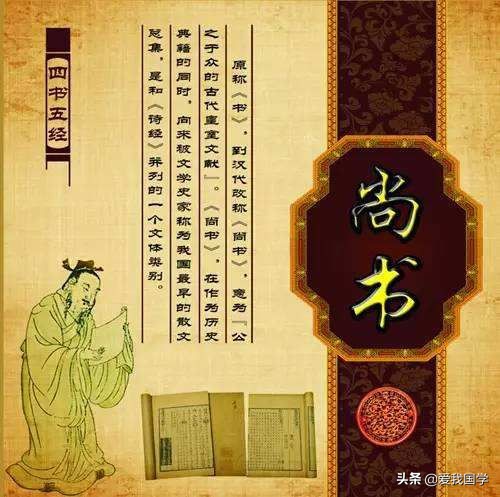 尚书
原称《书》，到汉代改称《尚书》，意为『公
之于众的古代皇室文献』。《尚书》，在作为历史
典籍的同时，向来被文学史家称为我国最早的散文
总集，是和《诗经》并列的一个文体类别。
【四书五经】
头条 @爱我国学